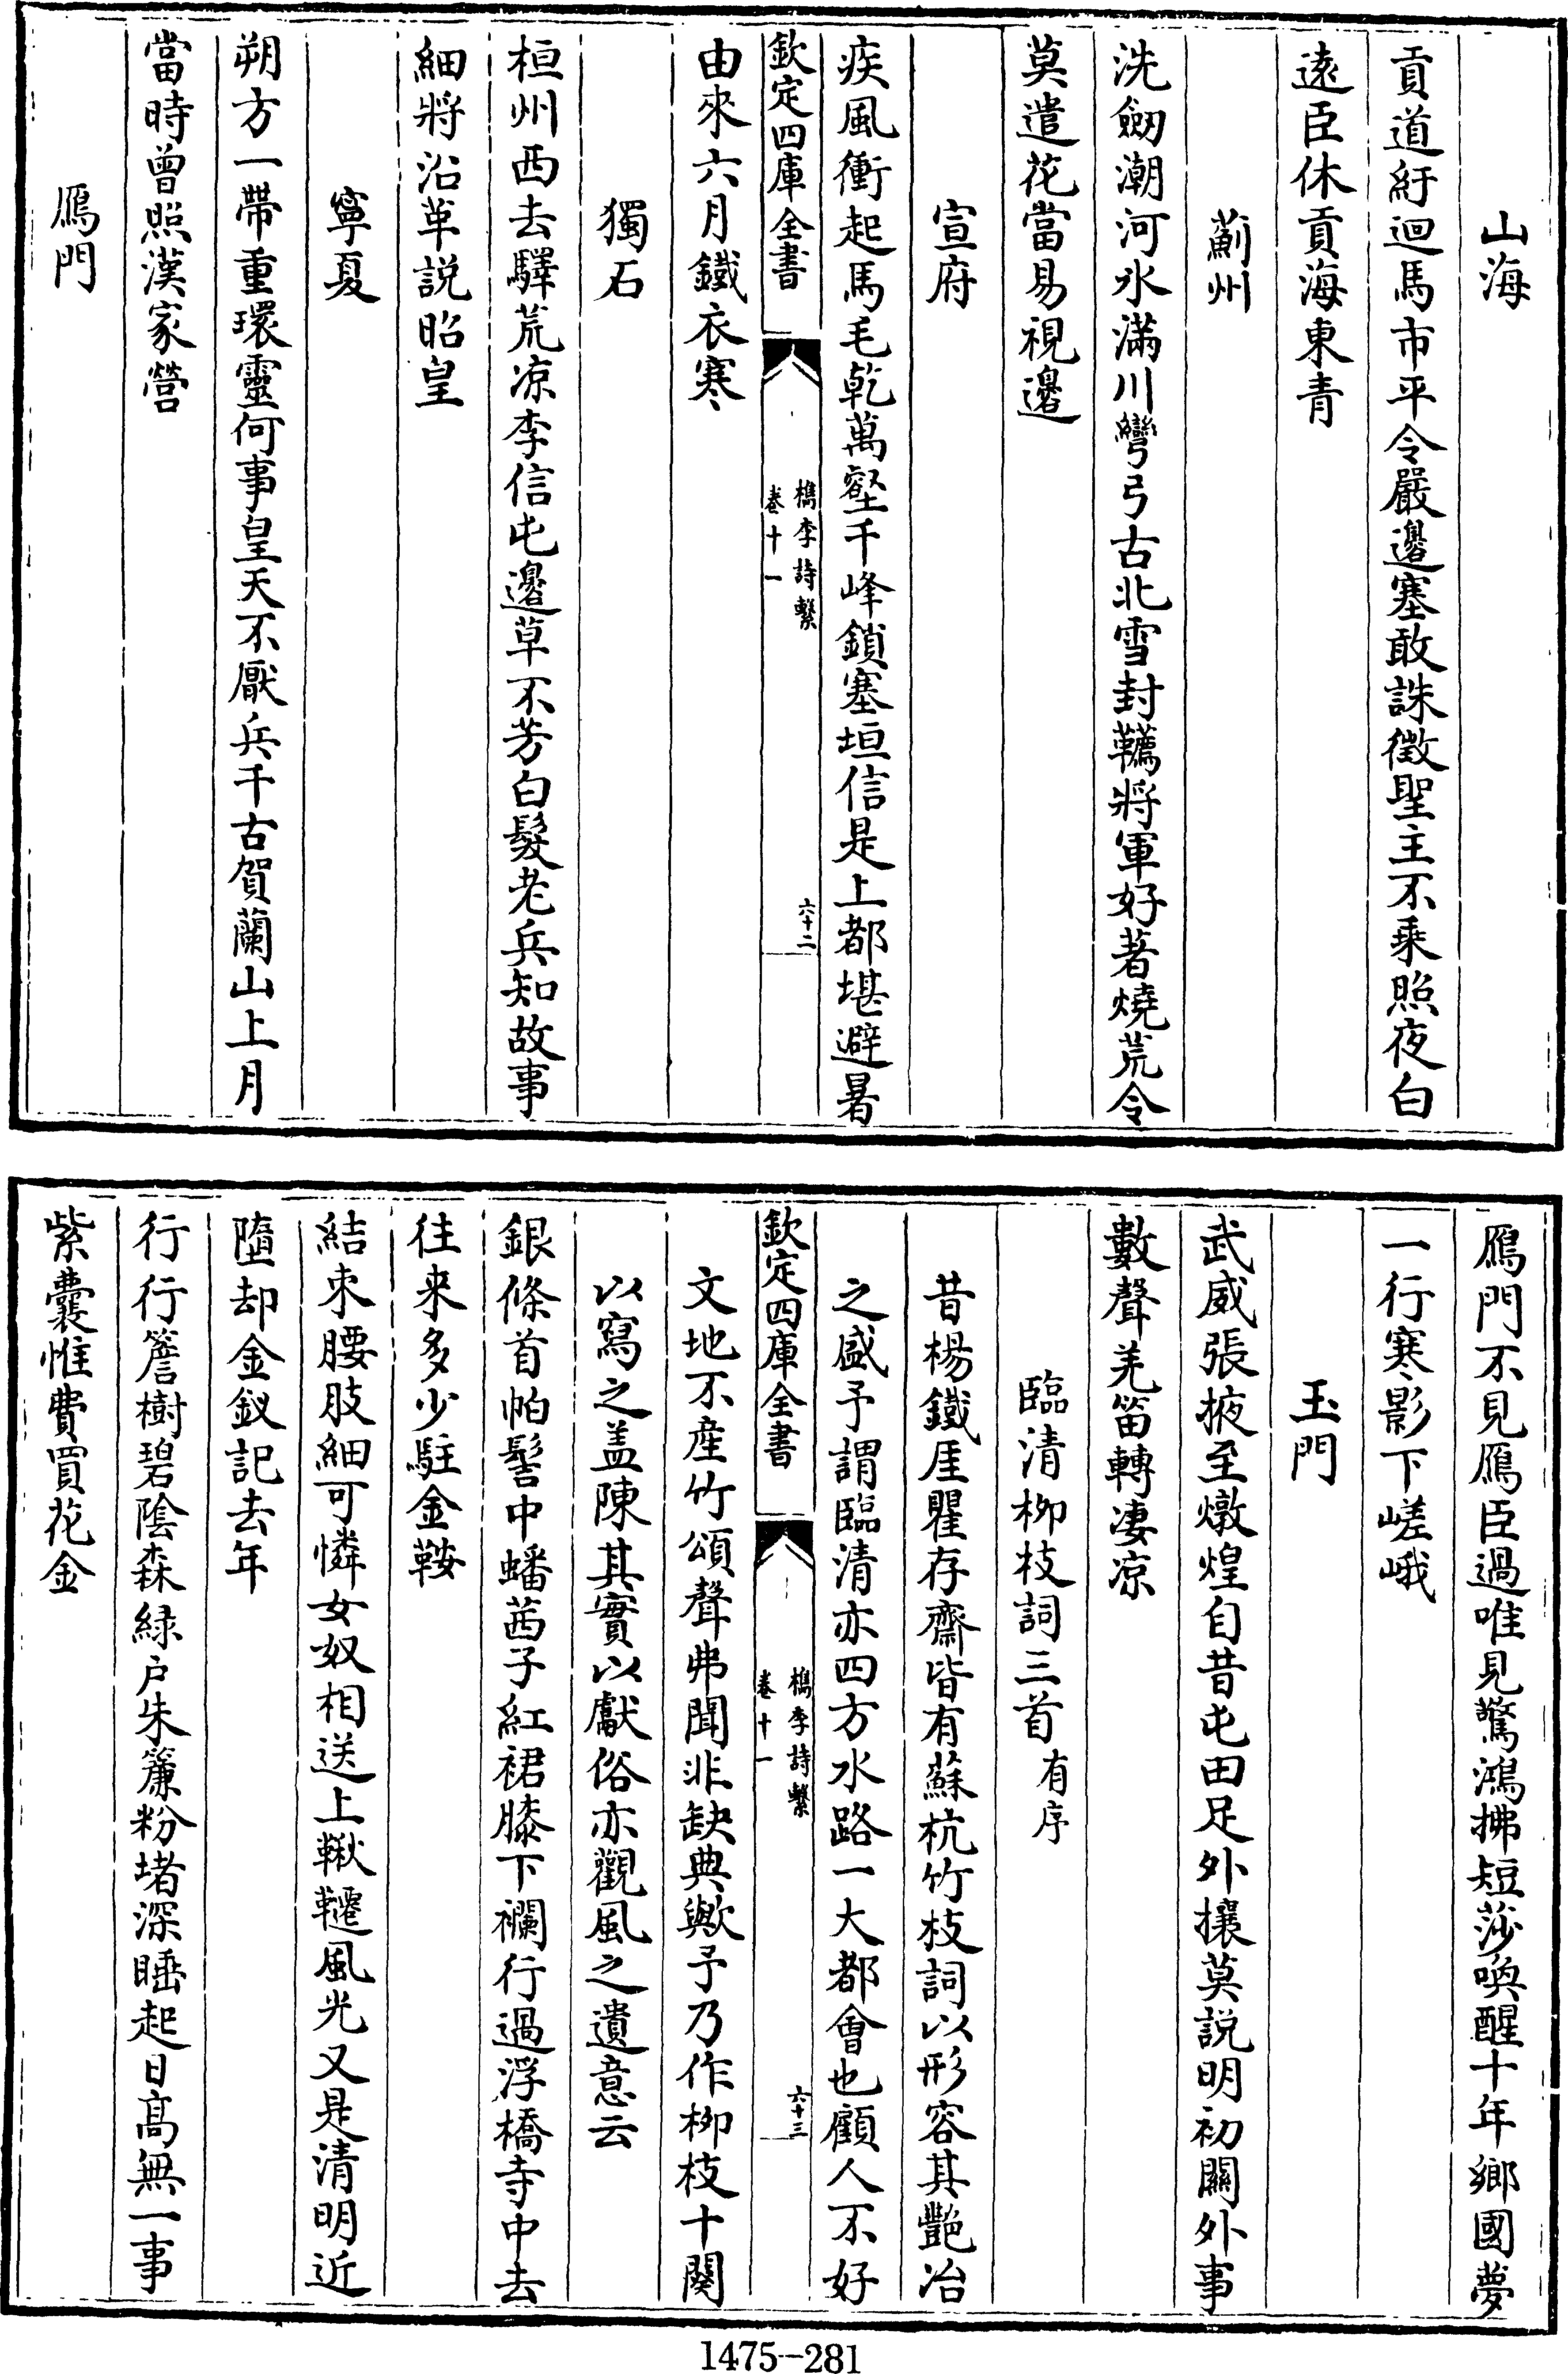 山海
貢道紆迴馬市平令嚴邊塞敢誅徴聖主不乘照夜白
遠臣休貢海東青
薊州
洗劒潮河水滿川彎弓古北雪封韉將軍好著燒荒令
莫遣花當易視邊
宣府
疾風衝起馬毛乾萬壑千峰鎖塞垣信是上都堪避暑
欽定四庫全書
檇李詩繫
卷十一
六十二
由來六月鐵衣寒
獨石
桓州西去驛荒凉李信屯邊草不芳白髮老兵知故事
細將沿革説昭皇
寧夏
朔方一帶重環靈何事皇天不厭兵千古賀蘭山上月
當時曾照漢家營
鴈門
鴈門不見鴈臣過唯見驚鴻拂短莎喚醒十年鄉國夢
一行寒影下嵯峨
玉門
武威張掖至燉煌自昔屯田足外攘莫説明初關外事
數聲羌笛轉凄凉
臨清柳枝詞三首有序
昔楊鐵厓瞿存齋皆有蘇杭竹枝詞以形容其艷冶
之盛予謂臨清亦四方水路一大都會也顧人不好
欽定四庫全書
檇李詩繫
卷十一
六十三
文地不産竹頌聲弗聞非缺典歟予乃作柳枝十闋
以寫之盖陳其實以獻俗亦觀風之遺意云
銀條首帕髻中蟠茜子紅裙膝下襴行過浮橋寺中去
往来多少駐金鞍
結束腰肢細可憐女奴相送上鞦韆風光又是清明近
墮却金釵記去年
行行簷樹碧陰森緑户朱簾粉堵深睡起日髙無一事
紫囊惟費買花金
1475—281